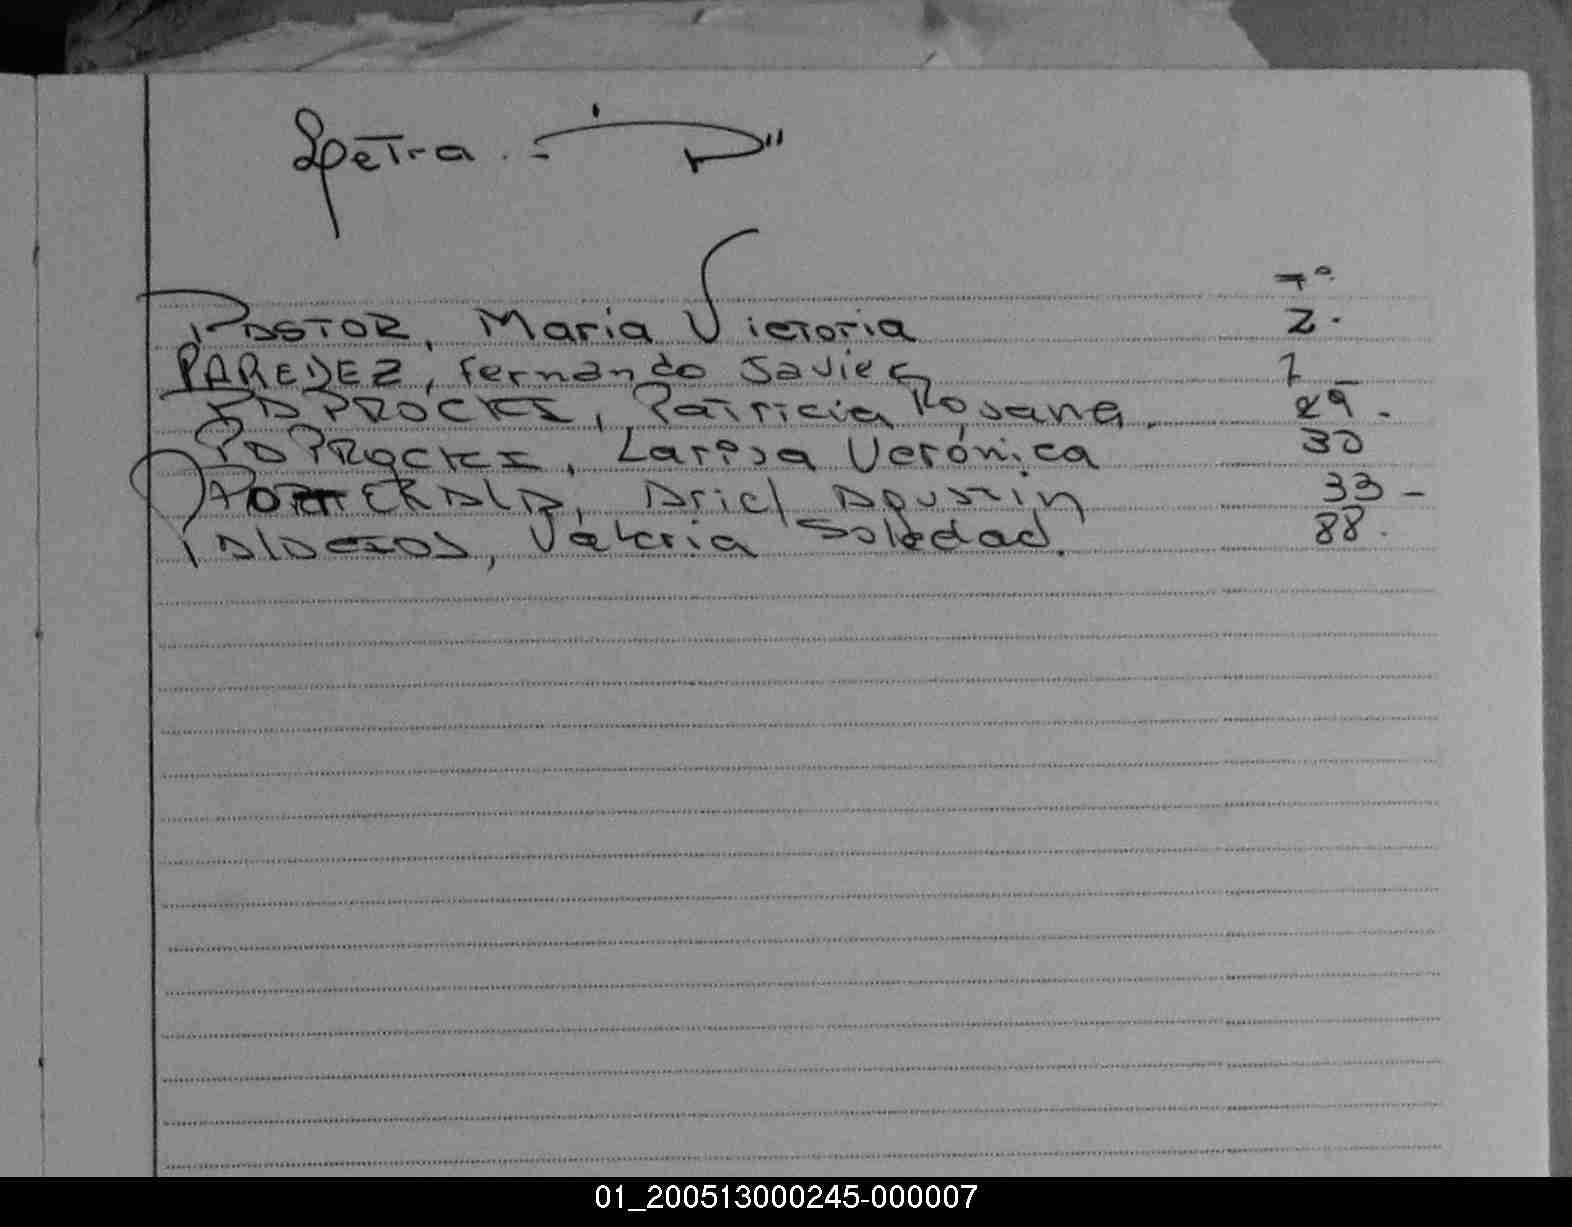 Letra. - "P"
7º
PASTOR, Maria Victoria 2.
PAREDEZ, Fernando Javier 7
POPROCKI, Patricia Rosana. 29.
POPROCKI, Larisa Verónica 30
Ariel Agustin 33 -
PALACIOS, Valeria Soledad. 88.
01_200513000245-000007